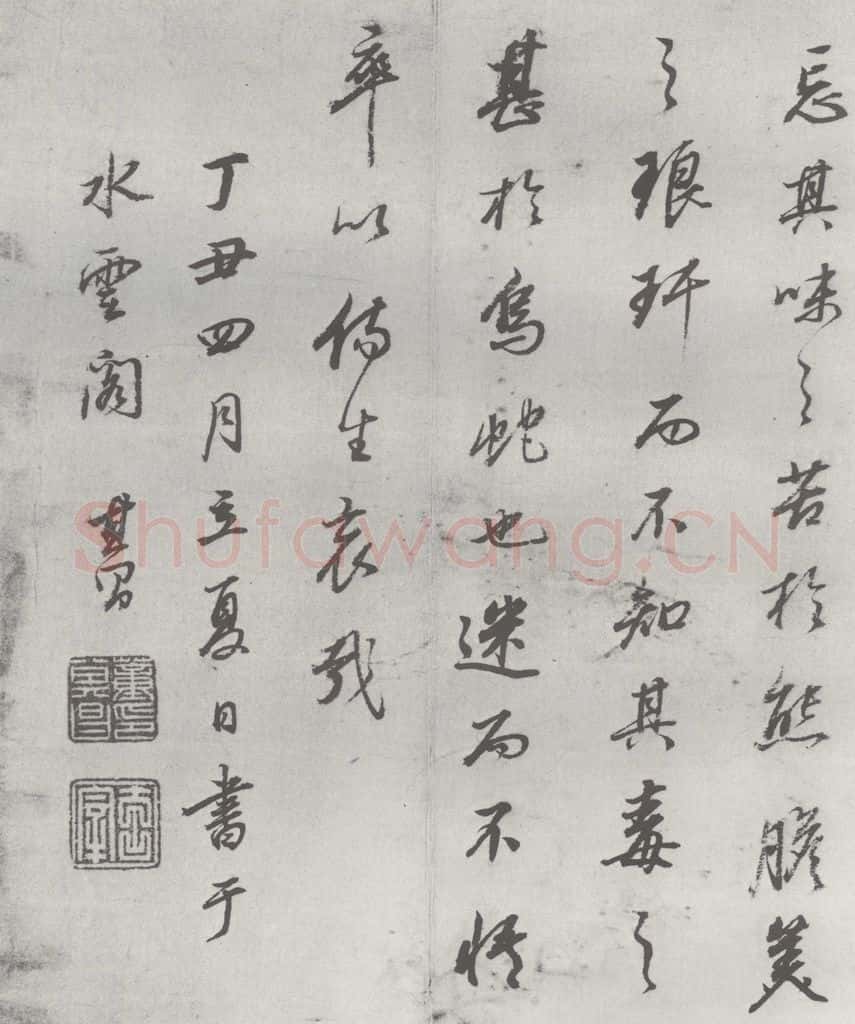 忘其味之苦於熊膽美
之琅玕而不知其毒之
甚於烏蛇也迷而不悟
率以傷生哀哉
丁丑四月立夏日書于
水雲閣 其昌
董其昌
Shufawang.CN